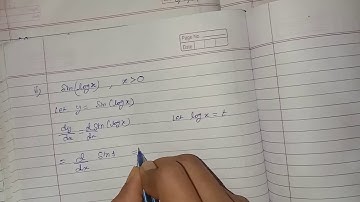 Page No.
Date
b) sin(log x) , x>0
Let y = sin(log x)
dy/dx = d/dx sin(log x)    Let log x = t
= d/dx sin t =